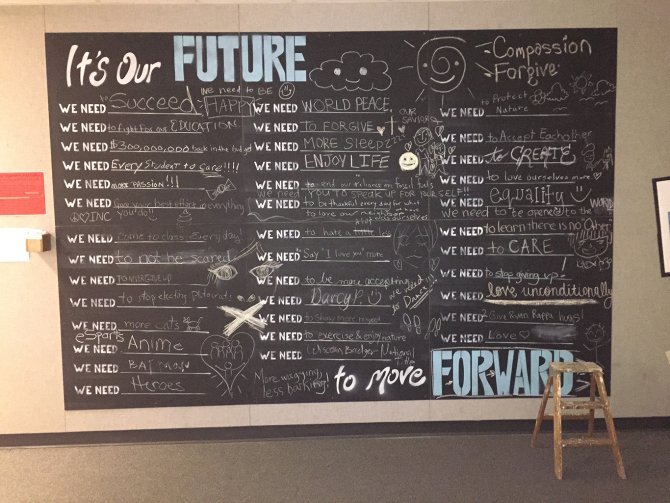 It's Our FUTURE
WE NEED to Succeed
we need to BE
HAPPY
WE NEED to fight For our EDUCATION
WE NEED $300,000,000 back in the budget
WE NEED Every Student to Care!!!!
WE NEED more PASSION!!!
WE NEED Give your best effort in everything
you do!!
INC
WE NEED Come to class Everyday
WE NEED to not be scared
WE NEED
WE NEED to stop electing Plutocrats
WE NEED more cats
eSports
WE NEED Anime
WE NEED BATMAN
WE NEED Heroes
WE NEED WORLD PEACE
WE NEED to FORGIVE
OUR
SAVIOR
WE NEED MORE Sleepzzz
WE NEED ENJOY LIFE
WE NEED to end our reliance on fossil fuels
we need YOU to SPEAK UP FOR YOURSELF!!
WE NEED to be thankful every day for what
to love our neighbor
ourselves
WE NEED to hate a less
WE NEED Say "I love you" more
WE NEED to be more accepting
we need
to Dance!!!
WE NEED Darcy P.
WE NEED to show more respect
WE NEED to exercise & enjoy nature
WE NEED National
Title
More wagging,
less barking!
to move
Compassion
Forgive
WE NEED to Protect
Nature
WE NEED to Accept Each other
WE NEED to CREATE
WE NEED to love ourselves more
WE NEED equality
we need to be opened to the WORLD
WE NEED to learn there is no Other
WE NEED to CARE
WE NEED to stop giving up!
WE NEED love unconditionally
WE NEED 2 Give Ryan Rappa hugs!
WE NEED Love
FORWARD